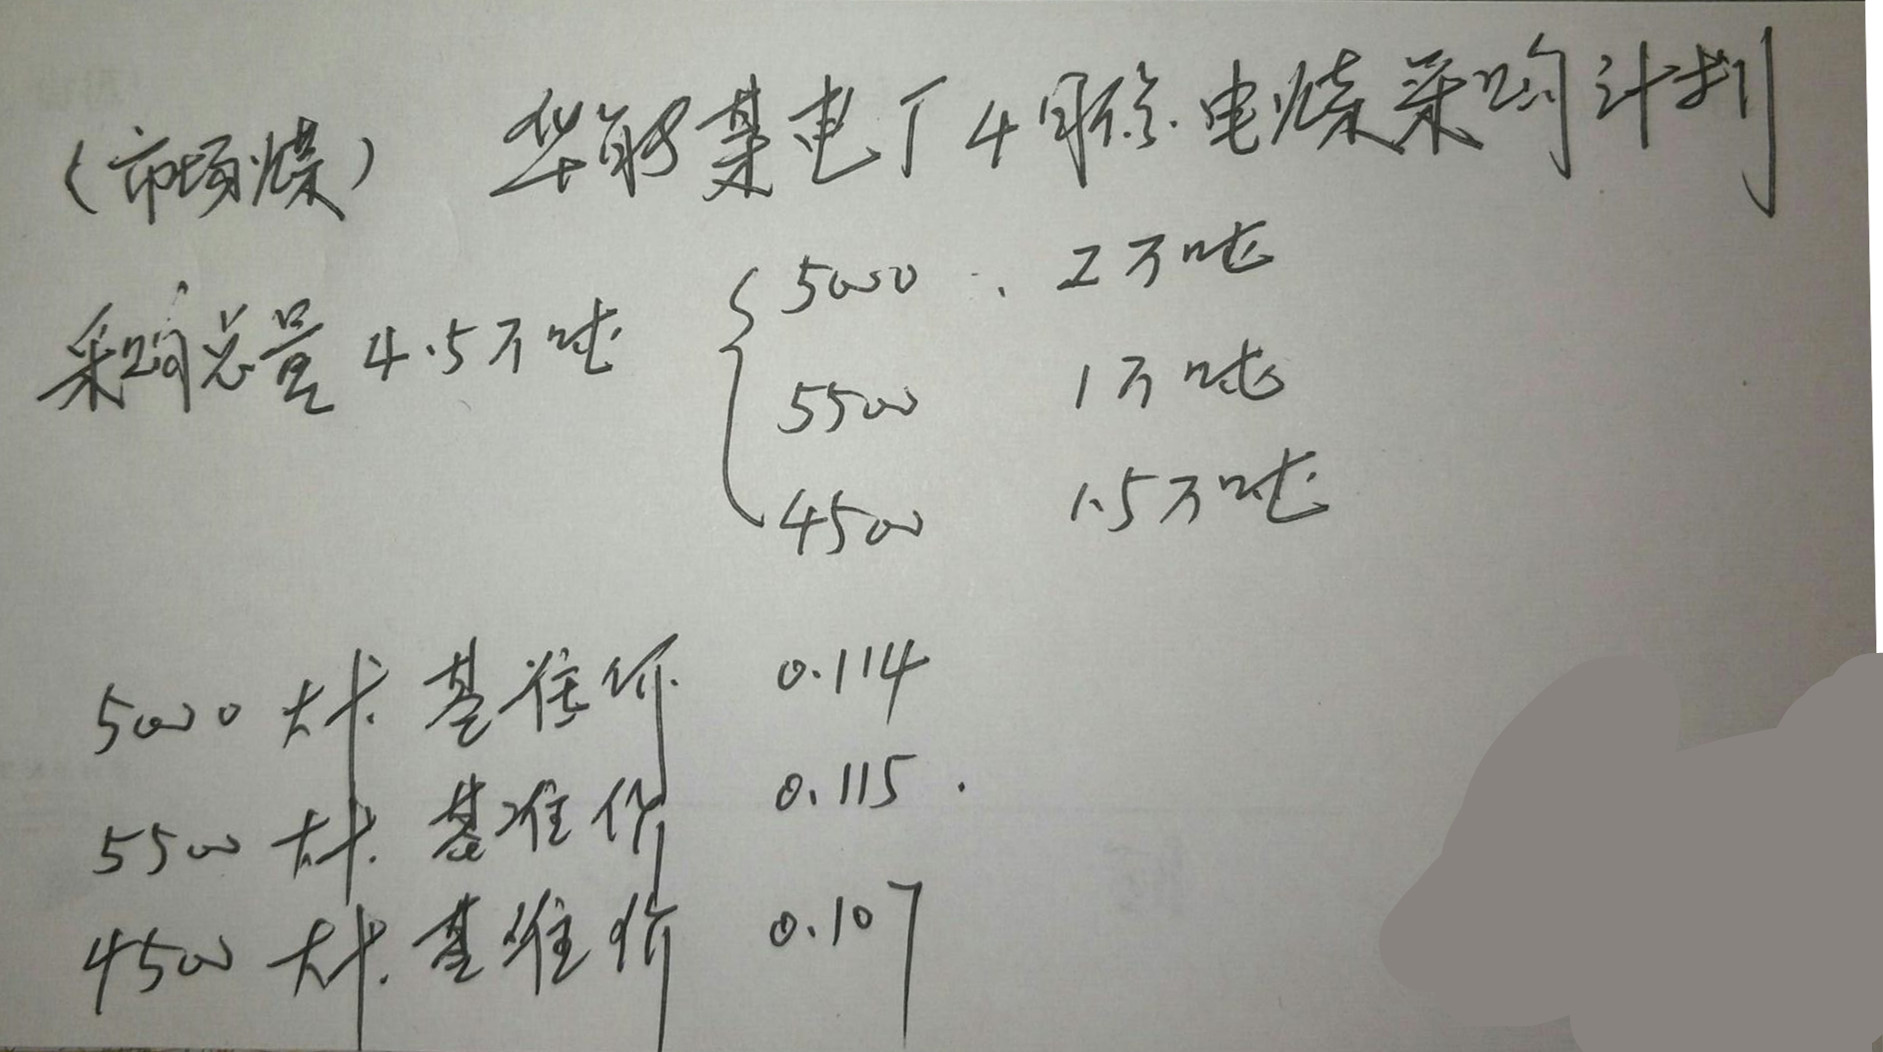 (市场煤) 华能某电厂4月份电煤采购计划
采购总量4.5万吨
5000 2万吨
5500 1万吨
4500 1.5万吨
5000大卡.基准价 0.114
5500大卡.基准价 0.115.
4500大卡.基准价 0.107